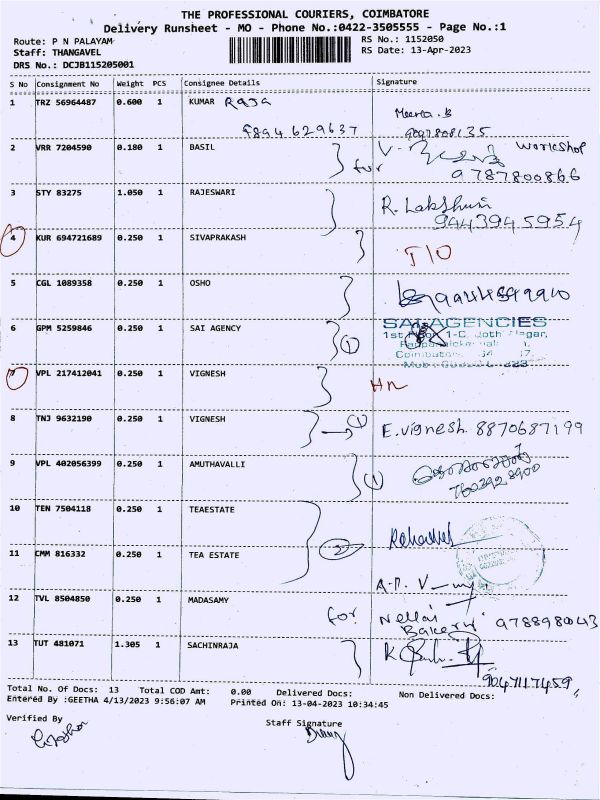 THE PROFESSIONAL COURIERS, COIMBATORE
Delivery Runsheet - MO - Phone No.:0422-3505555 - Page No.:1
Route: P N PALAYAM RS No.: 1152050
Staff: THANGAVEL RS Date: 13-Apr-2023
DRS No.: DCJB115205001
S No Consignment No Weight PCS Consignee Details Signature
1 TRZ 56964487 0.600 1 KUMAR Raja Meena.B
9894629637
2 VRR 7204590 0.180 1 BASIL for V. workshop
9787800866
3 STY 83275 1.050 1 RAJESWARI R. Lakshmi
9443945954
4 KUR 694721689 0.250 1 SIVAPRAKASH
5 CGL 1089358 0.250 1 OSHO
6 GPM 5259846 0.250 1 SAI AGENCY 1 SAI AGENCIES
7 VPL 217412041 0.250 1 VIGNESH
8 TNJ 9632190 0.250 1 VIGNESH 1 E.vignesh 8870687199
9 VPL 402056399 0.250 1 AMUTHAVALLI 1
10 TEN 7504118 0.250 1 TEAESTATE
2
11 CMM 816332 0.250 1 TEA ESTATE
12 TVL 8504850 0.250 1 MADASAMY
for Nellai Bakery 9788980043
13 TUT 481071 1.305 1 SACHINRAJA
9047117459
Total No. Of Docs: 13 Total COD Amt: 0.00 Delivered Docs: Non Delivered Docs:
Entered By :GEETHA 4/13/2023 9:56:07 AM Printed On: 13-04-2023 10:34:45
Verified By Staff Signature